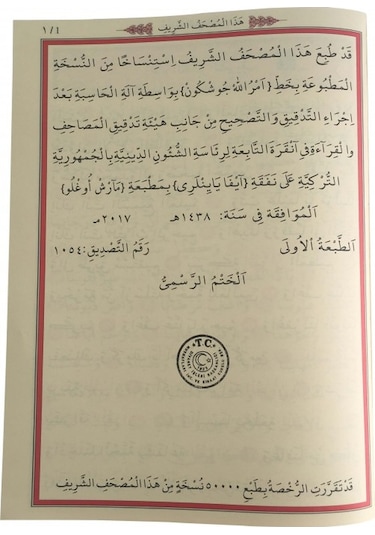 هَذَا الْمُصْحَفُ الشَّرِيفُ
١/١
قَدْ طُبِعَ هَذَا الْمُصْحَفُ الشَّرِيفُ اِسْتِنْسَاخًا مِنَ النُّسْخَةِ
الْمَطْبُوعَةِ بِخَطِّ {آمْرُ اللّٰهْ جُوشْكُونْ} بِوَاسِطَةِ آلَةِ الْحَاسِبَةِ بَعْدَ
اِجْرَاءِ التَّدْقِيقِ وَالتَّصْحِيحِ مِنْ جَانِبِ هَيْئَةِ تَدْقِيقِ الْمَصَاحِفِ
وَالْقِرَاءَةِ فِي اَنْقَرَةَ التَّابِعَةِ لِرِئَاسَةِ الشُّئُونِ الدِّينِيَّةِ بِالْجُمْهُورِيَّةِ
التُّرْكِيَّةِ عَلَى نَفَقَةِ {آيْفَا يَايِنْلَرِي} بِمَطْبَعَةِ {مَآرْشْ أُوغْلُو}
اَلْمُوَافِقَةِ فِي سَنَةِ: ١٤٣٨هـ ٢٠١٧مـ
اَلطَّبْعَةُ الْأُولَى رَقَمُ التَّصْدِيقِ: ١٠٥٤
اَلْخَتْمُ الرَّسْمِيُّ
T.C.
قَدْ تَقَرَّرَتِ الرُّخْصَةُ بِطَبْعِ ٥٠٠٠٠ نُسْخَةٍ مِنْ هَذَا الْمُصْحَفِ الشَّرِيفِ